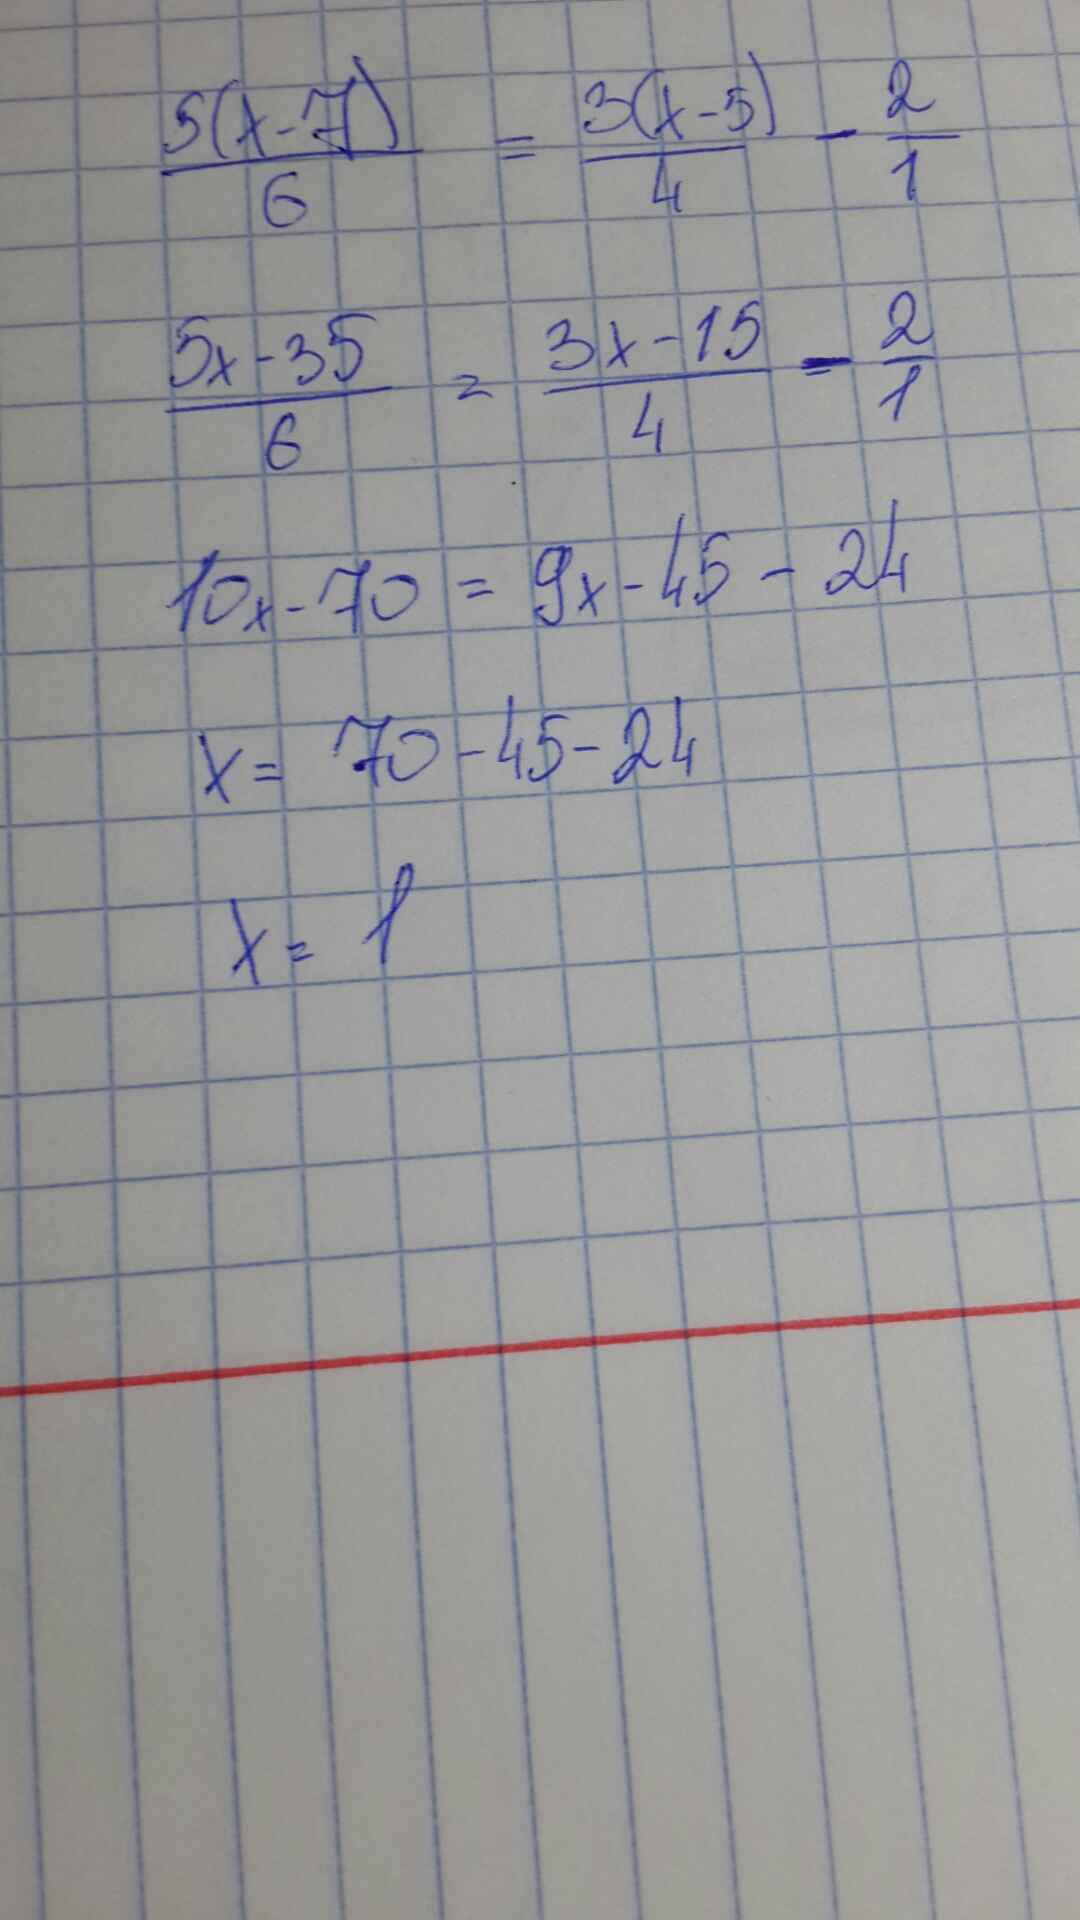 5(x-7)/6 = 3(x-5)/4 - 2/1
5x-35/6 = 3x-15/4 - 2/1
10x-70 = 9x-45-24
x= 70-45-24
x= 1